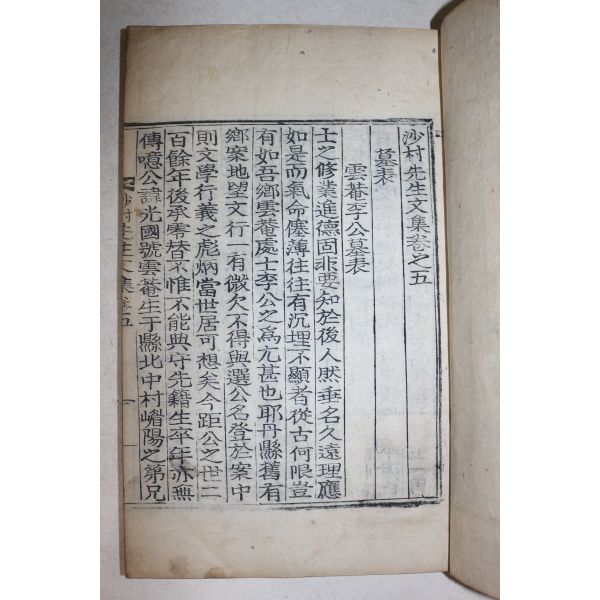 沙村先生文集卷之五
墓表
雲菴李公墓表
士之修業進德固非要知於後人然垂名久遠理應
如是而氣命蹇薄往往有沉埋不顯者從古何限豈
有如吾鄕雲菴處士李公之爲尤甚也耶丹縣舊有
鄕案地望文行一有微欠不得與選公名登於案中
則文學行義之彪炳當世居可想矣今距公之世二
百餘年後承零替不惟不能典守先籍生卒年亦無
傳噫公諱光國號雲菴生于縣北中村嵋陽之第兄
沙村先生文集卷五
一